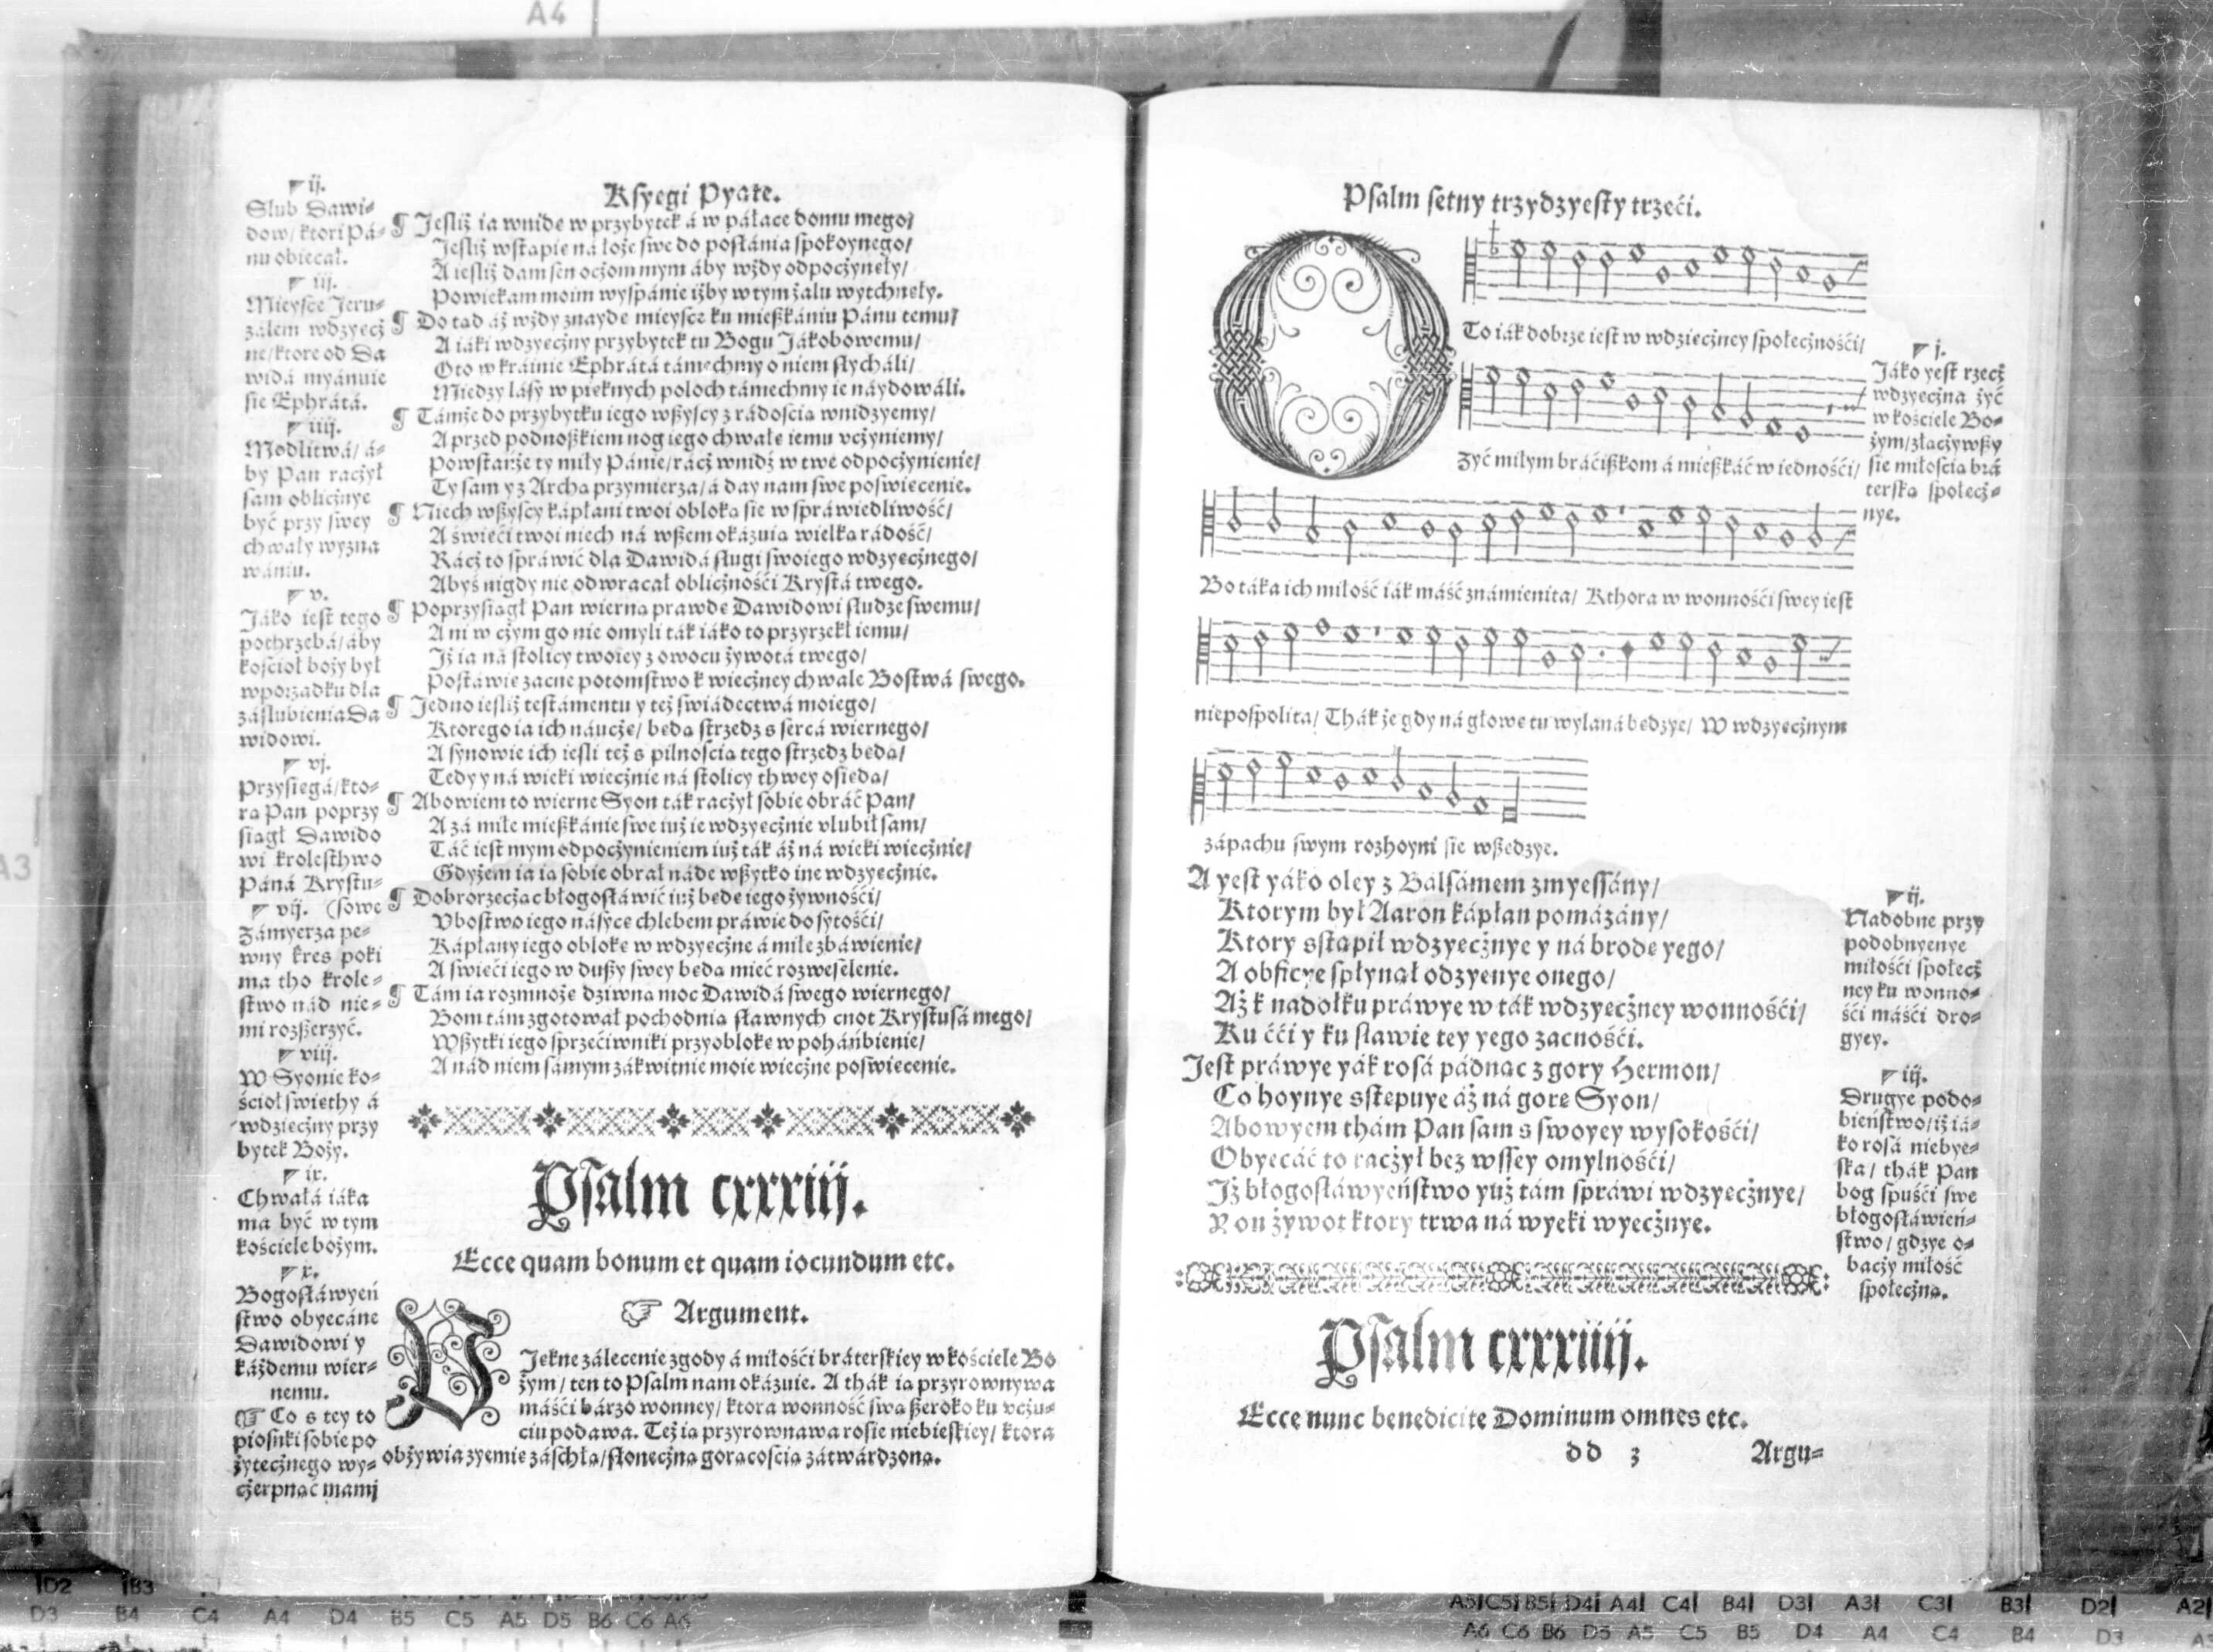 A4
Ksyegi Pyąte.
ij.
Slub Dawi-
dow/ ktori Pá-
nu obiecał.
iij.
Mieysce Jeru-
zálem wdzyęcż
ne/ ktore od Da
widá myánuie
się Ephrátá.
iiij.
Modlitwá/ á-
by Pan racżył
sam oblicżnye
być przy swey
chwały wyzna
wániu.
v.
Jáko iest tego
pothrzebá/ áby
kościoł boży był
w porządku dla
záślubienia Da
widowi.
vj.
Przysięgá/ kto-
ra Pan poprzy
siągł Dawido
wi krolesthwo
Páná Krystu-
vij. (sowe
Zámyerza pe-
wny kres poki
ma tho krole-
stwo nád nie-
mi rozßerzyć.
viij.
W Syonie ko-
ścioł święthy á
wdzięcżny przy
bytek Boży.
ix.
Chwałá iáka
ma być w tym
kościele bożym.
x.
Bogosłáwyeń
stwo obyecáne
Dawidowi y
káżdemu wier-
nemu.
Co s tey to
piosnki sobie po
żytecżnego wy-
cżerpnąć mamy
¶ Jesliż ia wnidę w przybytek á w páłace domu mego/
Jesliż wstąpię ná łoże swe do posłánia spokoynego/
A iesliż dam sen ocżom mym áby wżdy odpocżynęły/
Powiekam moim wyspánie iżby w tym żalu wytchnęły.
¶ Do tąd áż wżdy znaydę mieysce ku mießkániu Pánu temu/
A iáki wdzyęcżny przybytek tu Bogu Jákobowemu/
Oto w kráinie Ephrátá támechmy o niem słycháli/
Miedzy lásy w pięknych poloch támechmy ie náydowáli.
¶ Támże do przybytku iego wßyscy z rádością wnidzyemy/
A przed podnoßkiem nog iego chwałę iemu vcżyniemy/
Powstańże ty miły Pánie/ rácż wnidź w twe odpocżynienie/
Ty sam y z Archą przymierza/ á day nam swe poświęcenie.
¶ Niech wßyscy kápłani twoi obloką się w spráwiedliwość/
A święci twoi niech ná wßem okázuią wielką rádość/
Rácż to spráwić dla Dawidá sługi swoiego wdzyęcżnego/
Abyś nigdy nie odwracał oblicżności Krystá twego.
¶ Poprzysiągł Pan wierną prawdę Dawidowi słudze swemu/
A ni w cżym go nie omyli ták iáko to przyrzekł iemu/
Jż ia ná stolicy twoiey z owocu żywotá twego/
Postáwię zacne potomstwo k wiecżney chwale Bostwá swego.
¶ Jedno iesliż testámentu y też świádectwá moiego/
Ktorego ia ich náucżę/ będą strzedz s sercá wiernego/
A synowie ich iesli też s pilnością tego strzedz będą/
Tedy y ná wieki wiecżnie ná stolicy thwey osiędą/
¶ Abowiem to wierne Syon ták racżył sobie obráć Pan/
A zá miłe mießkánie swe iuż ie wdzyęcżnie vlubił sam/
Táć iest mym odpocżynieniem iuż ták áż ná wieki wiecżnie/
Gdyżem ia ią sobie obrał náde wßytko ine wdzyęcżnie.
¶ Dobrorzecżąc błogosłáwić iuż będę iego żywności/
Vbostwo iego násycę chlebem práwie do sytości/
Kápłany iego oblokę w wdzyęcżne á miłe zbáwienie/
A święci iego w dußy swey będą mieć rozweselenie.
¶ Tám ia rozmnożę dziwną moc Dawidá swego wiernego/
Bom tám zgotował pochodnią sławnych cnot Krystusá mego/
Wßytki iego sprzeciwniki przyoblokę w poháńbienie/
A nád niem sámym zákwitnie moie wiecżne poświęcenie.
Psalm cxxxiij.
Ecce quam bonum et quam iocundum etc.
Argument.
PIękne zálecenie zgody á miłości bráterskiey w kościele Bo
żym/ ten to Psalm nam okázuie. A thák ią przyrownywa
máści bárzo wonney/ ktora wonność swą ßeroko ku vcżu-
ciu podawa. Też ią przyrownawa rosie niebieskiey/ ktora
obżywia zyemię záschłą/ słonecżną gorącością zátwárdzoną.
Psalm setny trzydzyesty trzeci.
O
To iák dobrze iest w wdzięcżney społecżności/
Zyć miłym brácißkom á mießkáć w iedności/
Bo táka ich miłość iák máść známienita/ Kthora w wonności swey iest
niepospolita/ Thák że gdy ná głowę tu wylána będzye/ W wdzyęcżnym
zápachu swym rozhoyni się wßędzye.
j.
Jáko yest rzecż
wdzyęcżna żyć
w kościele Bo-
żym/ złącżywßy
się miłością brá
terską społecż-
nye.
A yest yáko oley z Bálsámem zmyessány/
Ktorym był Aaron kápłan pomázány/
Ktory sstąpił wdzyęcżnye y ná brodę yego/
A obficye spłynął odzyenye onego/
Aż k nadołku práwye w ták wdzyęcżney wonności/
Ku ćći y ku sławie tey yego zacności.
Jest práwye yák rosá pádnąc z gory Hermon/
Co hoynye sstępuye áż ná gorę Syon/
Abowyem thám Pan sam s swoyey wysokości/
Obyecáć to racżył bez wssey omylności/
Jż błogosłáwyeństwo yuż tám spráwi wdzyęcżnye/
Y on żywot ktory trwa ná wyeki wyecżnye.
ij.
Nadobne przy
podobnyenye
miłości społecż
ney ku wonno-
ści máści dro-
gyey.
iij.
Drugye podo-
bieństwo/ iż iá-
ko rosá niebye-
ska/ thák Pan
bog spuści swe
błogosłáwień-
stwo/ gdzye o-
bacży miłość
społecżną.
Psalm cxxxiiij.
Ecce nunc benedicite Dominum omnes etc.
dd 3 Argu-
A3
D2 B3
D3 B4 C4 A4 D4 B5 C5 A5 D5 B6 C6 A6
A5 C5 B5 D4 A4 C4 B4 D3 A3 C3 B3 D2 A2
A6 C6 B6 D5 A5 C5 B5 D4 A4 C4 B4 D3